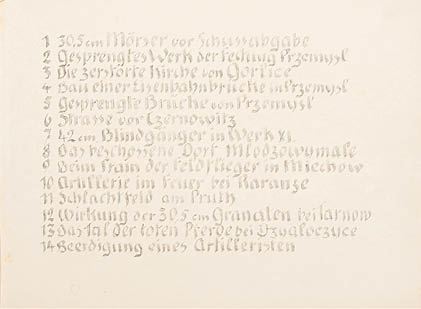 1 30,5 cm Mörser vor Schussabgabe
2 Gesprengtes Werk der Festung Przemysl
3 Die zerstörte Kirche von Gorlice
4 Bau einer Eisenbahnbrücke in Przemysl
5 Gesprengte Brücke von Przemysl
6 Strasse vor Czernowitz
7 42 cm Blindgänger in Werk XI.
8 Das beschossene Dorf Mlodzowymale
9 Beim Train der Feldflieger in Miechow
10 Artillerie im Feuer bei Karanze
11 Schlachtfeld am Pruth
12 Wirkung der 30,5 cm Granaten bei Tarnow
13 Das Tal der toten Pferde bei
14 Beerdigung eines Artilleristen